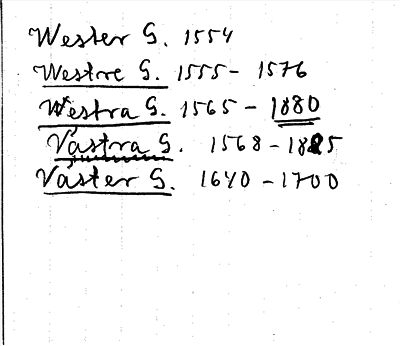 Wester G. 1554
Westre G. 1555 - 1576
Westra G. 1565 - 1880
Västra G. 1568 - 1825
Väster G. 1640 - 1700